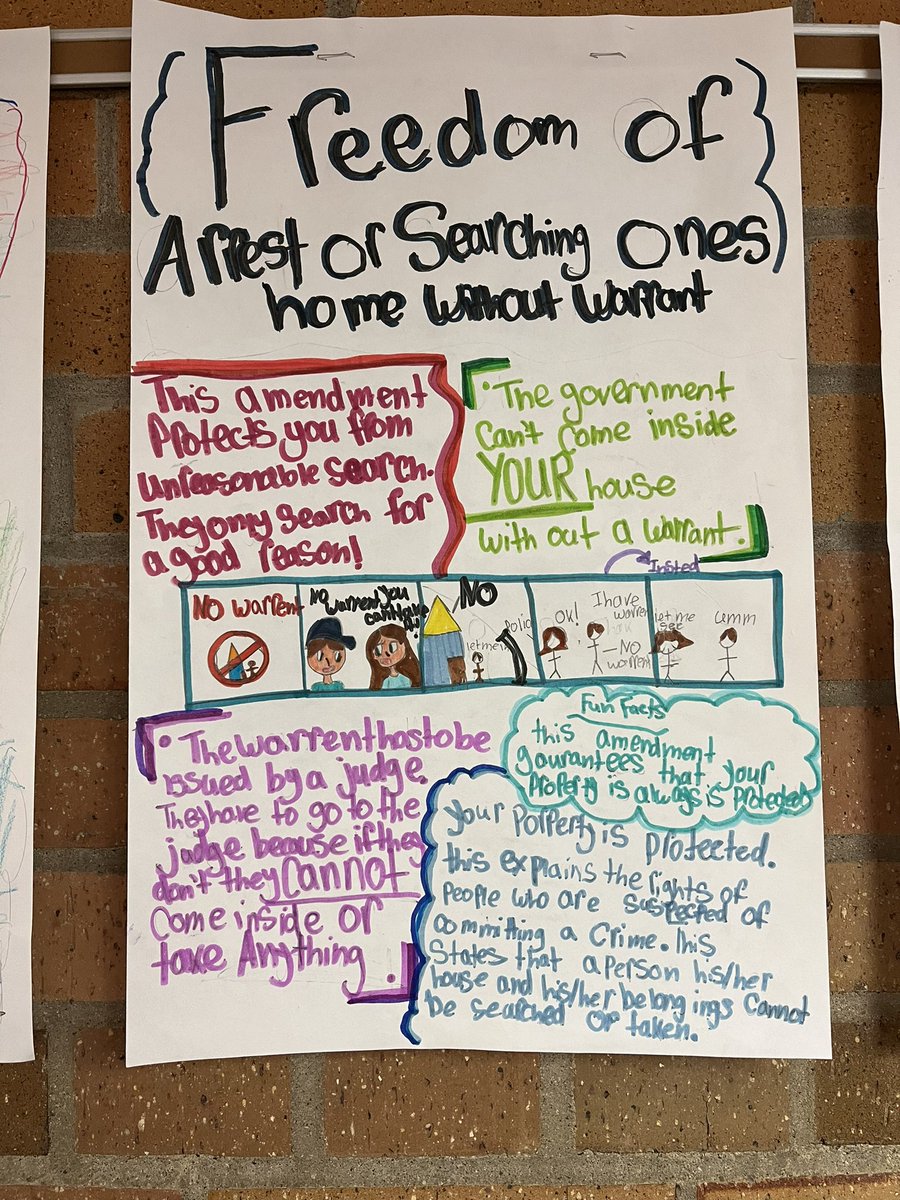 Freedom of
Arrest or Searching ones
home without warrant
This amendment
Protects you from
unreasonable search.
They only search for
a good reason!
• The government
can't come inside
YOUR house
with out a warrant.
Insted
NO warrent
No
warrent you
NO
letmein
ok!
I have
warren
-NO
warrent
let me
see
umm
• The warrent has to be
issued by a judge.
They have to go to the
judge because if they
don't they cannot
come inside or
take Anything.
Fun Facts
this amendment
gaurantees that your
Property is always is protected
your Porperty is protected.
this explains the rights of
People who are suspected of
committing a Crime. This
States that a person his/her
house and his/her belongings cannot
be searched or taken.